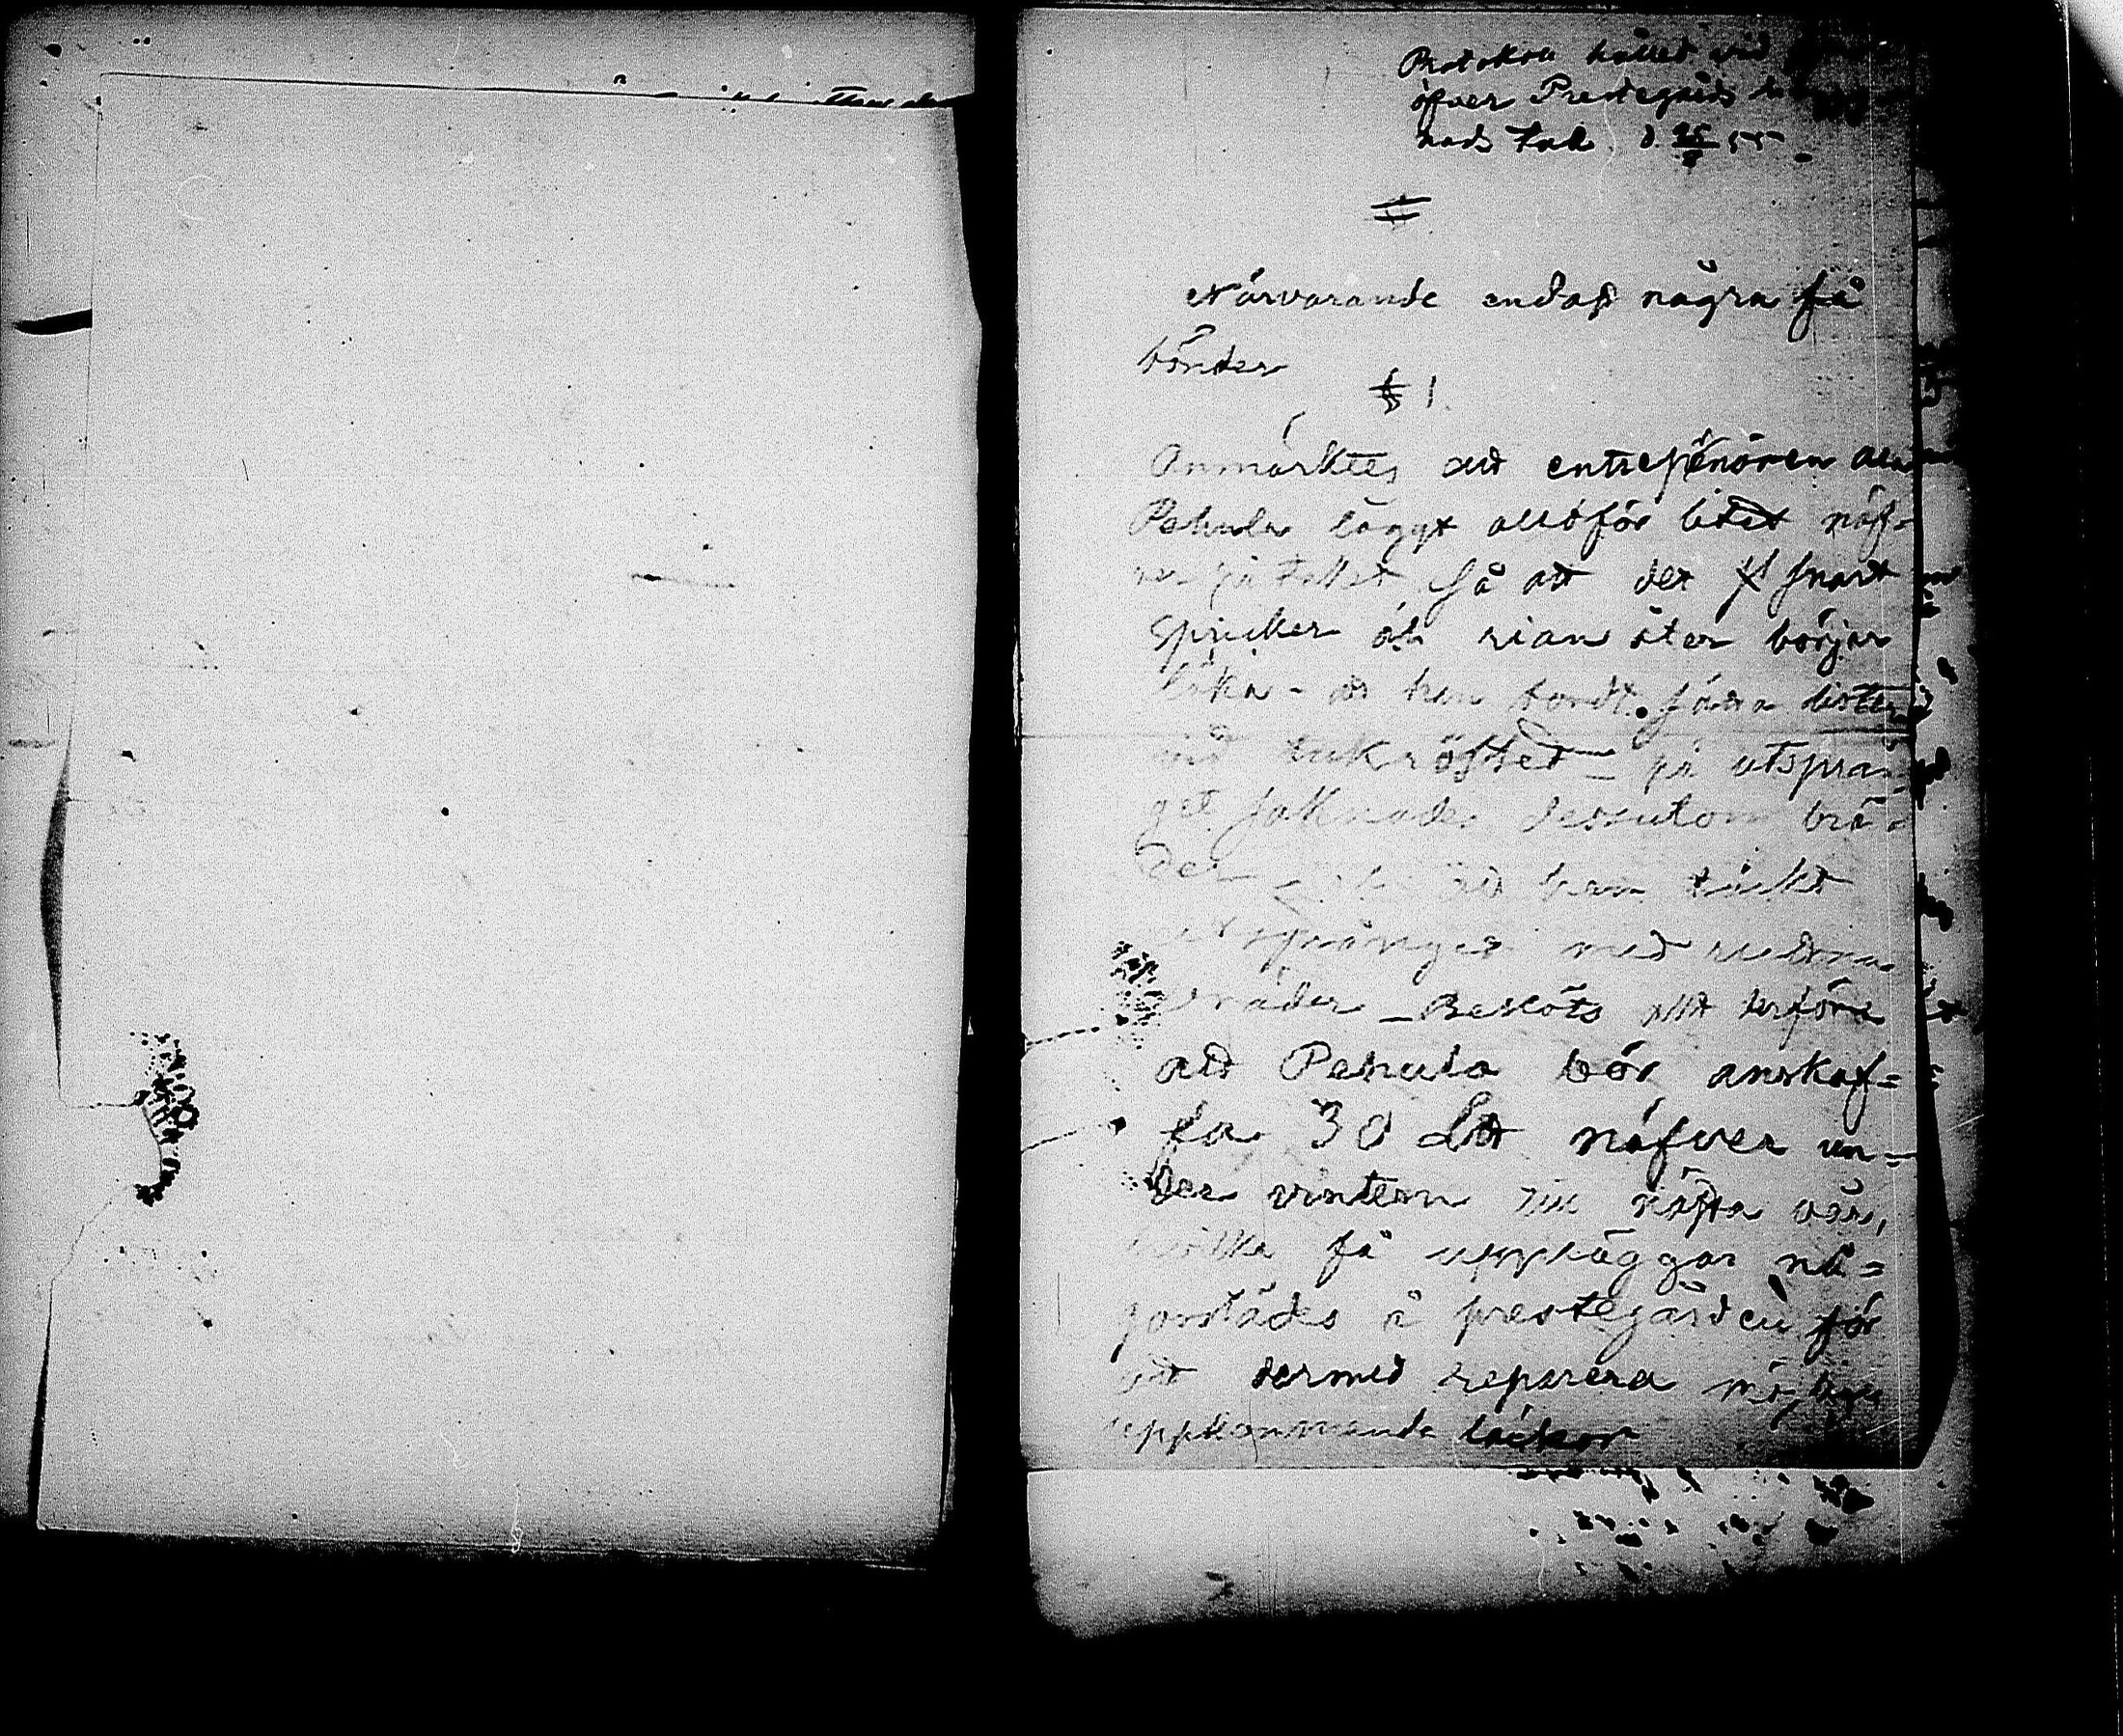 Protokoll hållet vid
öfver Prestegårds
nads tak. d. 25/8 55
Närvarande endast några få
bönder
§ 1.
Anmärktes att entrepenören
Pehula lagt alltför litet näf-
ver på taket så att det snart
spricker och rian åter börjar
läka - att han bordt sätta lister
vid takröstet - på utsprån
get saknades dessutom brä-
der - att han täckt
utsprånget med
bräder - Beslöts derföre
att Pehula bör anskaf=
fa 30 Ltt näfver un=
der vintern till nästa vår,
hvilka få uppläggas nå=
gorstädes å prestegården för
att dermed reparera möjligen
uppkommande läckor